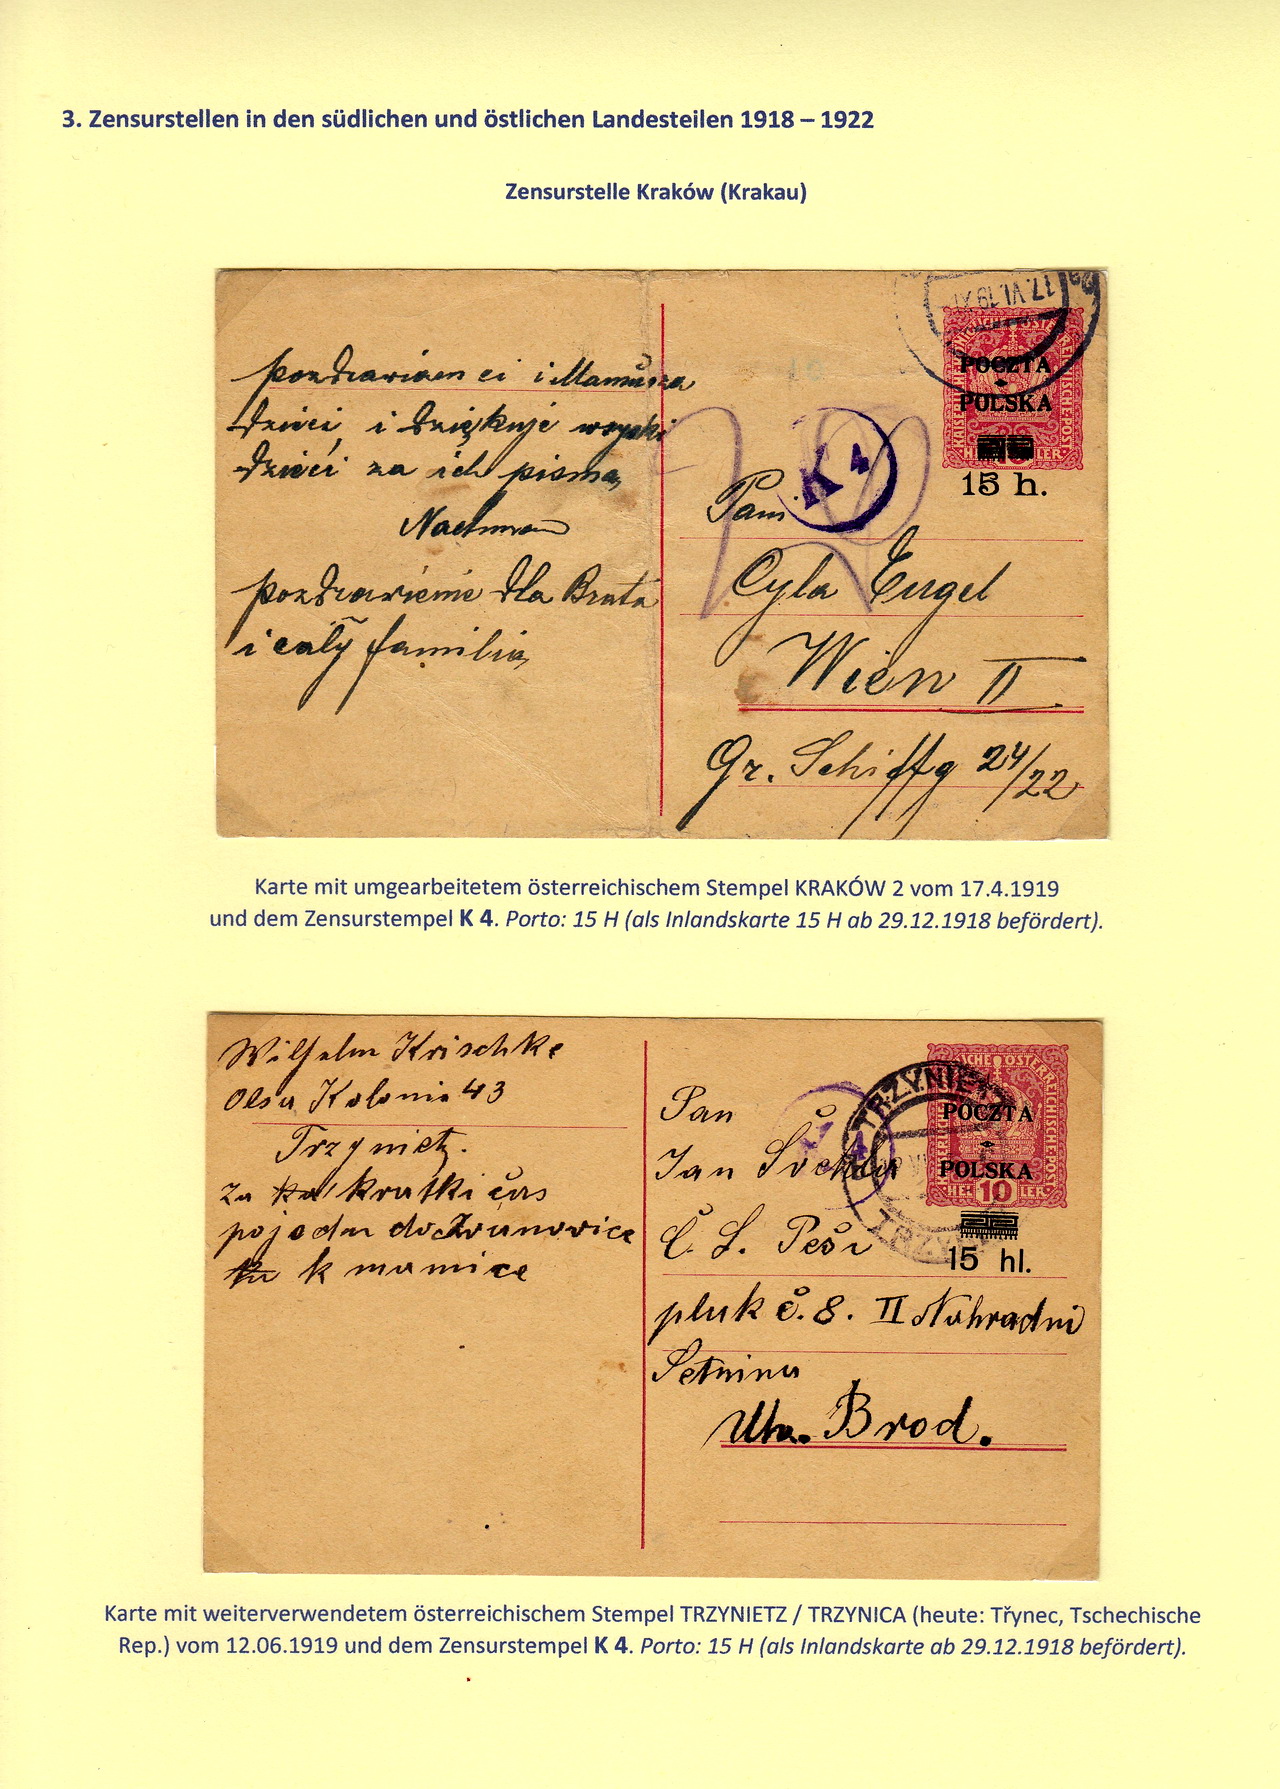 3. Zensurstellen in den südlichen und östlichen Landesteilen 1918 – 1922
Zensurstelle Kraków (Krakau)
pozdrawiam ci i Mamusza
dzieci i dziękuje wszyski
dzieci za ich pisma,
Nachman
pozdrawienie dla Brata
i cały familia,
17.VI.19
KAISERLICHE KÖNIGLICHE ÖSTERREICHISCHE POST
POCZTA
POLSKA
HELLER
15 h.
K 4
Pani
Cyla Engel
Wien II
Gr. Schiffg 24/22
Karte mit umgearbeitetem österreichischem Stempel KRAKÓW 2 vom 17.4.1919
und dem Zensurstempel K 4. Porto: 15 H (als Inlandskarte 15 H ab 29.12.1918 befördert).
Wilhelm Krischke
Olsa Kolonie 43
Trzynietz.
za kratki čas
pojedu do Zvanovice
k mamice
TRZYNIETZ
ÖSTERREICHISCHE POST
POCZTA
POLSKA
10
HELLER
15 hl.
K 4
Pan
Jan
Č. S. Peši
pluk č. 8. II Nahradni
Setnina
Uh. Brod.
Karte mit weiterverwendetem österreichischem Stempel TRZYNIETZ / TRZYNICA (heute: Třynec, Tschechische
Rep.) vom 12.06.1919 und dem Zensurstempel K 4. Porto: 15 H (als Inlandskarte ab 29.12.1918 befördert).